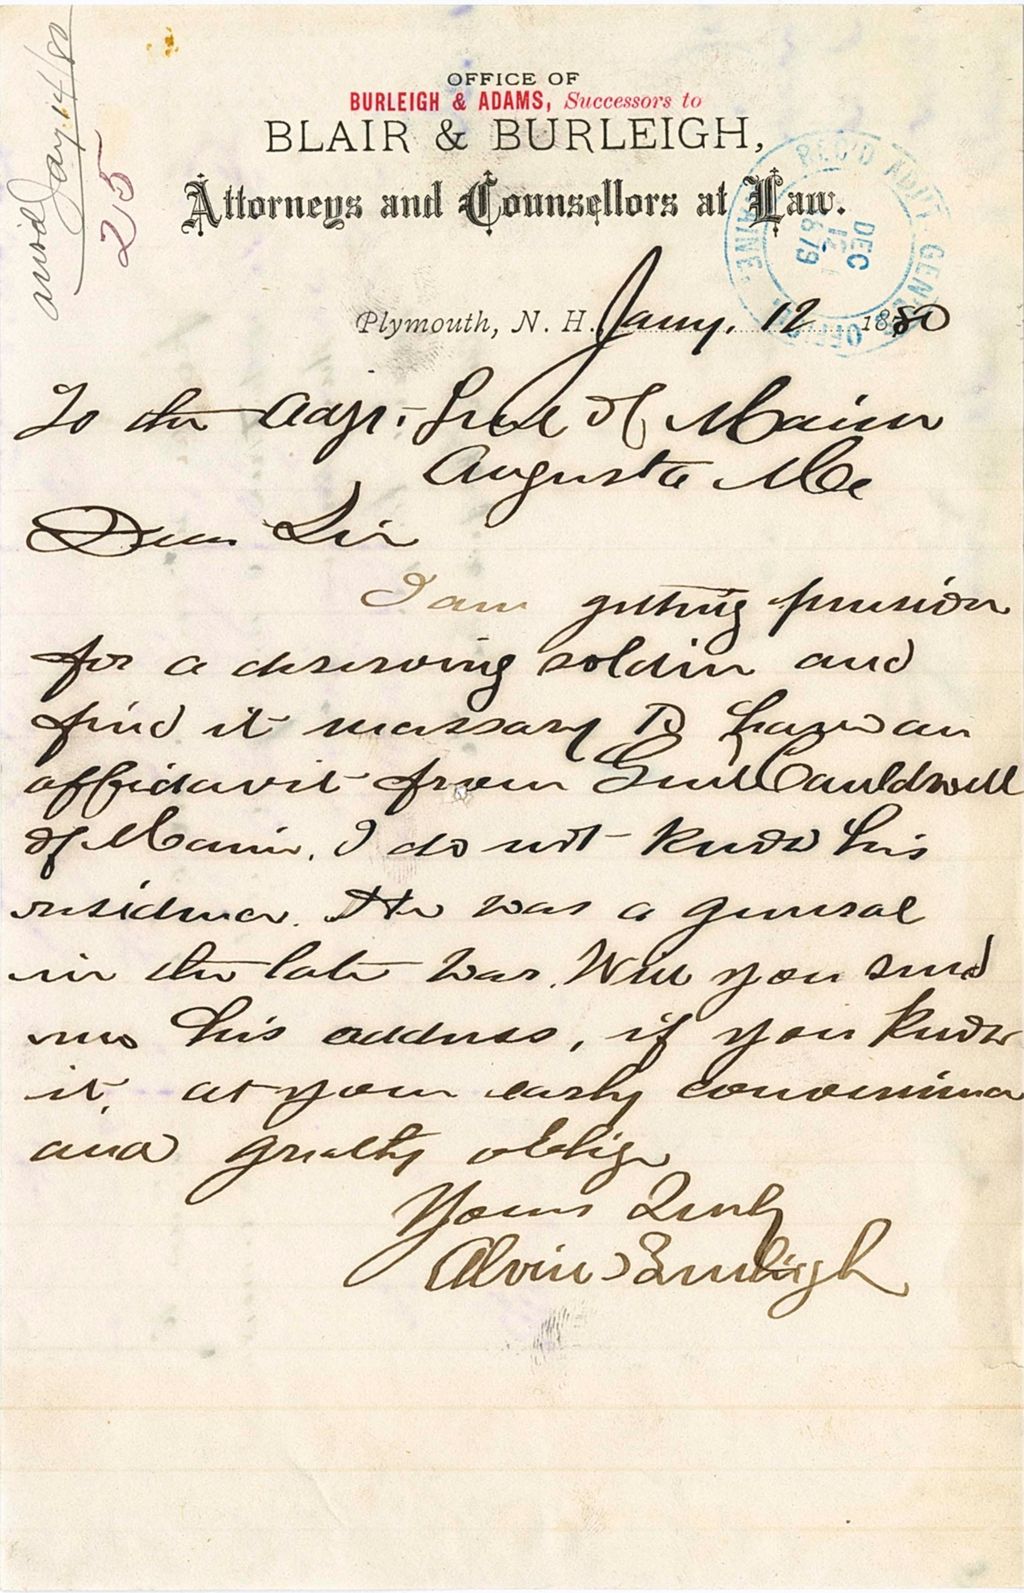 answd Jany 14/80
25
OFFICE OF
BURLEIGH & ADAMS, Successors to
BLAIR & BURLEIGH,
Attorneys and Counsellors at Law.
REC'D ADJT. GENERAL'S OFFICE MAINE
DEC
12
1879
Plymouth, N. H. Jany. 12 1880
To the Adjt. Genl of Maine
Augusta Me
Dear Sir
I am getting pension
for a deserving soldier and
find it necessary to have an
affidavit from Genl Cauldwell
of Maine. I do not know his
residence. He was a general
in the late war. Will you send
me his address, if you know
it, at your early convenience
and greatly oblige
Yours Truly
Alvin Burleigh